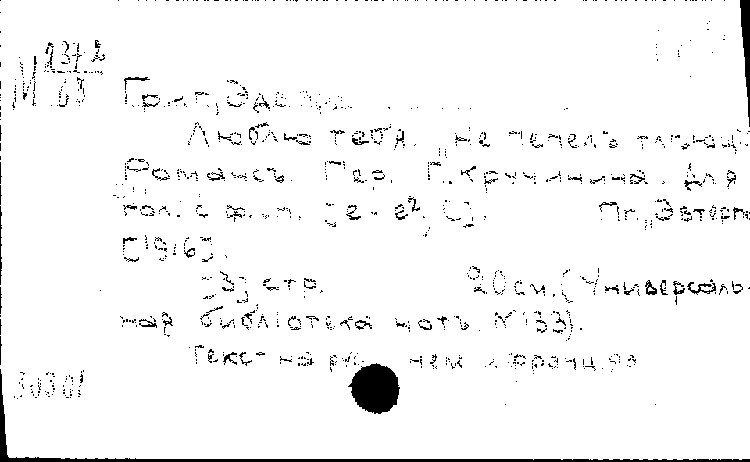 М 237 2/63
Григ, Эдвард
Люблю тебя. „Не пепелъ тлѣющій
Романсъ. Пер. Г. Кручинина. Для
гол. с ф.-п. [e - e², C]. Пг., „Эвтерпа
[1916].
[3] стр. 20 см. (Универсаль-
ная библіотека нотъ. N 133).
Текст на рус., нем. и франц. яз
30301